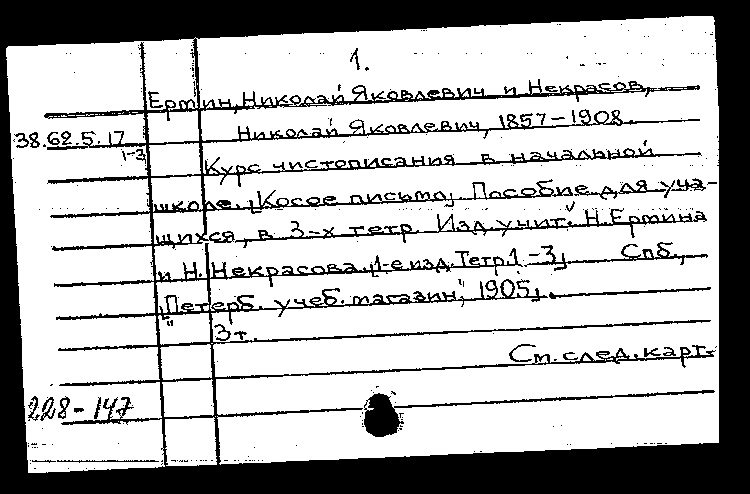 1.
Ермин, Николай Яковлевич и Некрасов,
38.62.5.17 Николай Яковлевич, 1857-1908.
1-3
Курс чистописания в начальной
школе. [Косое письмо]. Пособие для уча-
щихся, в 3-х тетр. Изд. учит. Н. Ермина
и Н. Некрасова. [1-е изд. Тетр. 1-3] Спб.,
["Петерб. учеб. магазин", 1905].
3 т.
См. след. карт.
228-147